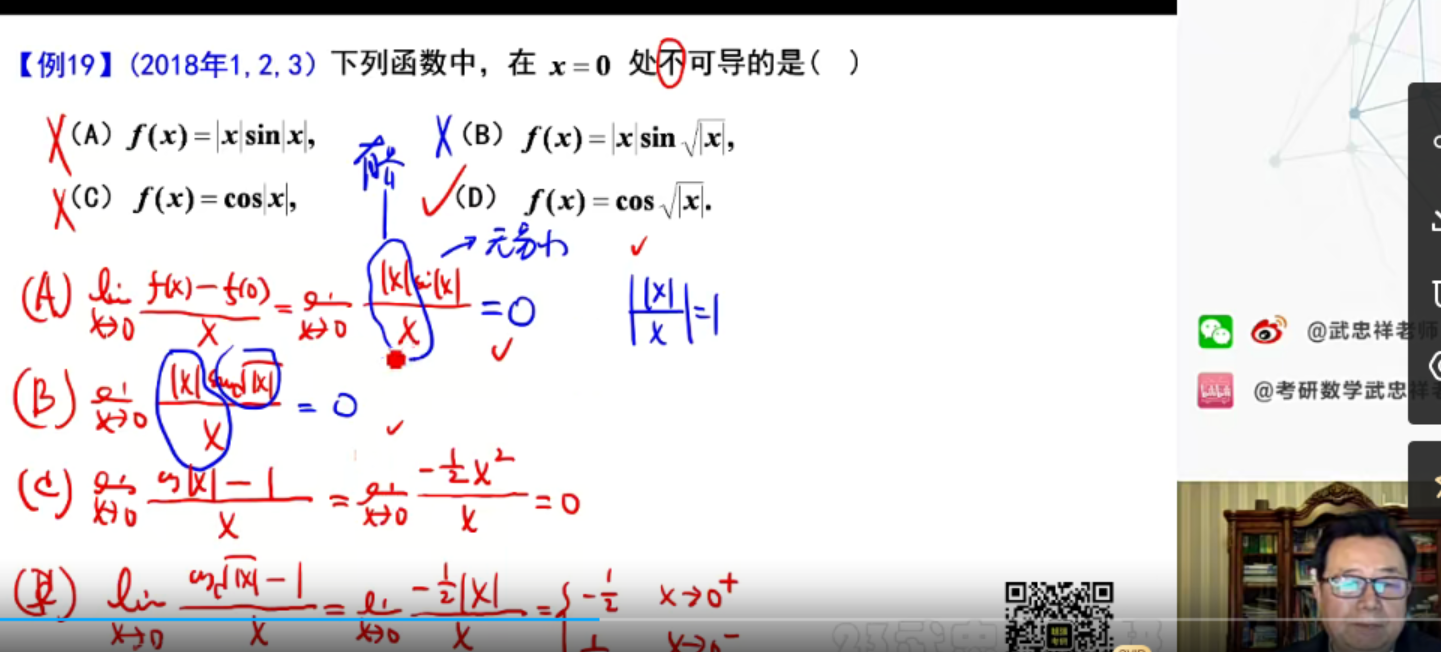 【例19】(2018年1,2,3) 下列函数中，在 x=0 处不可导的是( )
X (A) f(x)=|x|sin|x|, X (B) f(x)=|x|sin√|x|,
X (C) f(x)=cos|x|, ✓ (D) f(x)=cos√|x|.
有界
→ 无穷小 ✓
(A) lim x→0 f(x)-f(0) / x = lim x→0 |x|sin|x| / x = 0 ✓ | |x| / x | = 1
(B) lim x→0 |x|sin√|x| / x = 0 ✓
(C) lim x→0 cos|x|-1 / x = lim x→0 -1/2 x² / x = 0
lim x→0 cos√|x|-1 / x = lim x→0 -1/2|x| / x = { -1/2 x→0⁺
x→0⁻
@武忠祥老师
@考研数学武忠祥老